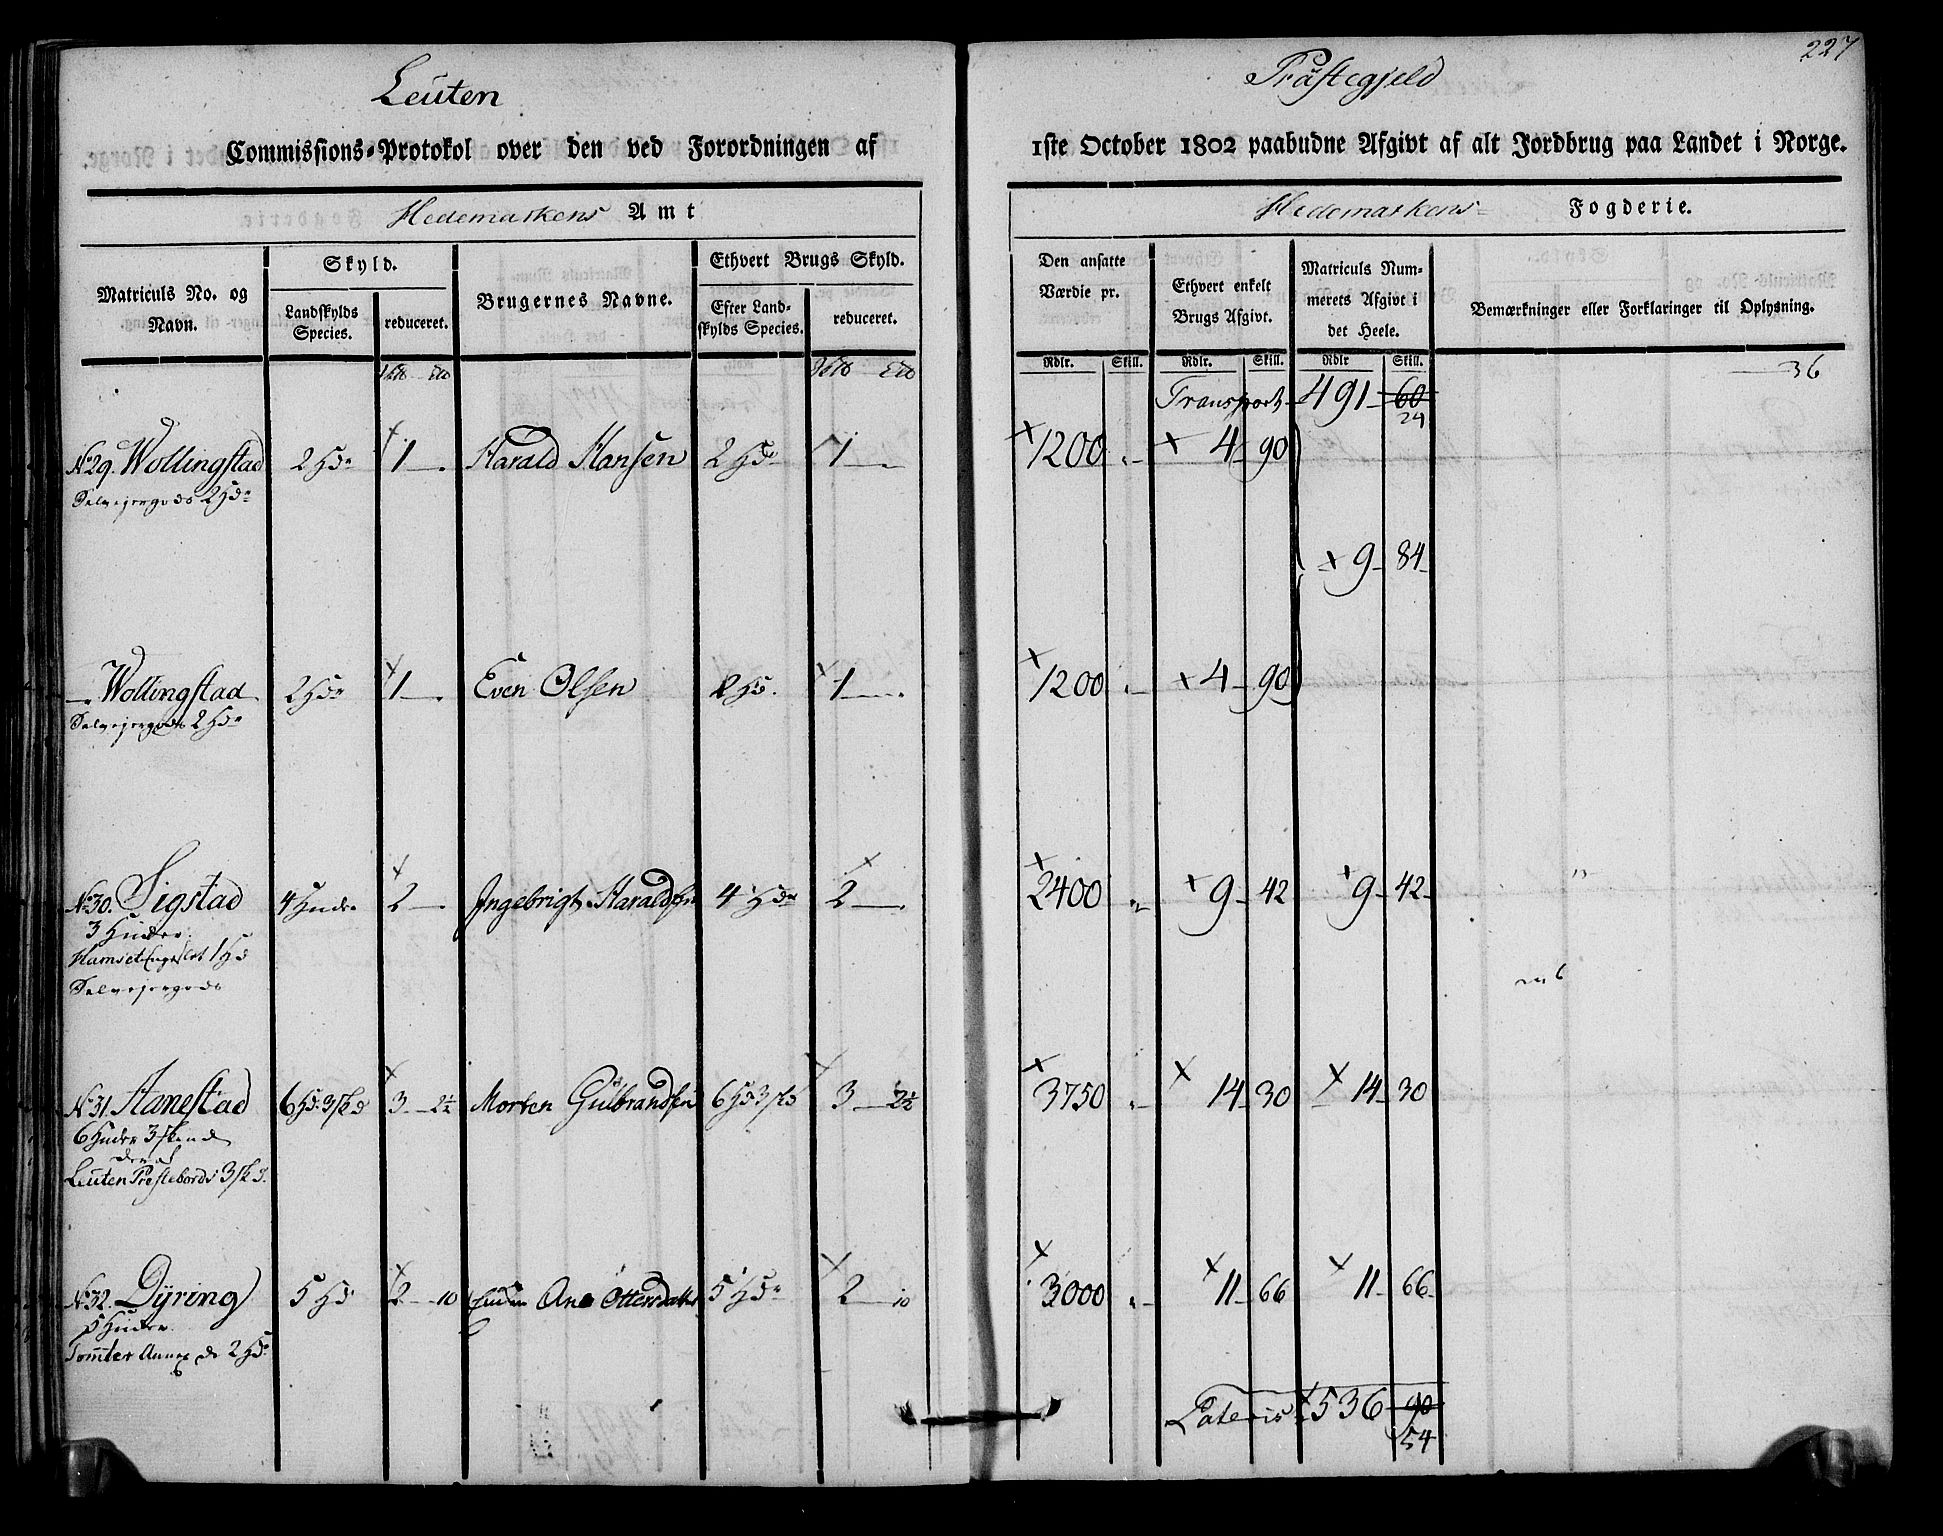 227
Leuten Præstegjeld
Commissions-Protokol over den ved Forordningen af 1ste October 1802 paabudne Afgivt af alt Jordbrug paa Landet i Norge.
Hedemarkens Amt Hedemarkens Fogderie.
Matriculs No. og Navn.
Skyld.
Landskylds Species.
reduceret.
Brugernes Navne.
Ethvert Brugs Skyld.
Efter Landskylds Species.
reduceret.
Den ansatte Værdie pr.
Ethvert enkelt Brugs Afgivt.
Matriculs Nummerets Afgivt i det Heele.
Bemærkninger eller Forklaringer til Oplysning.
Rdlr. Skill. Rdlr. Skill. Rdlr Skill.
36
Transport 491 60
24
No 29. Wollingstad 2 Hdr 1 Harald Hansen 2 Hdr 1 1200 4 90
Selvejergods 2 Hdr
9 84
Wollingstad 2 Hdr 1 Even Olsen 2 Hd. 1 1200 4 90
Selvejergods 2 Hdr
No 30. Sigstad 4 Huder 2 Ingebrigt Haraldsen 4 Hdr 2 2400 9 42 9 42
3 Huder
1 Hd
Selvejergods
No 31. Aanestad 6 Hd. 3 skd 3 2½ Morten Gulbrandsen 6 Hd 3 skd 3 2½ 3750 14 30 14 30
6 Huder 3 skind
deraf
Leuten Prestebord 3 sk d.
No 32. Dÿring 5 Hd 2 10 Enken Ane Ottersdatter 5 Hdr 2 10 3000 11 66 11 66
5 Huder
Tomter Annex 2 Hdr
Lateris 536 90
54